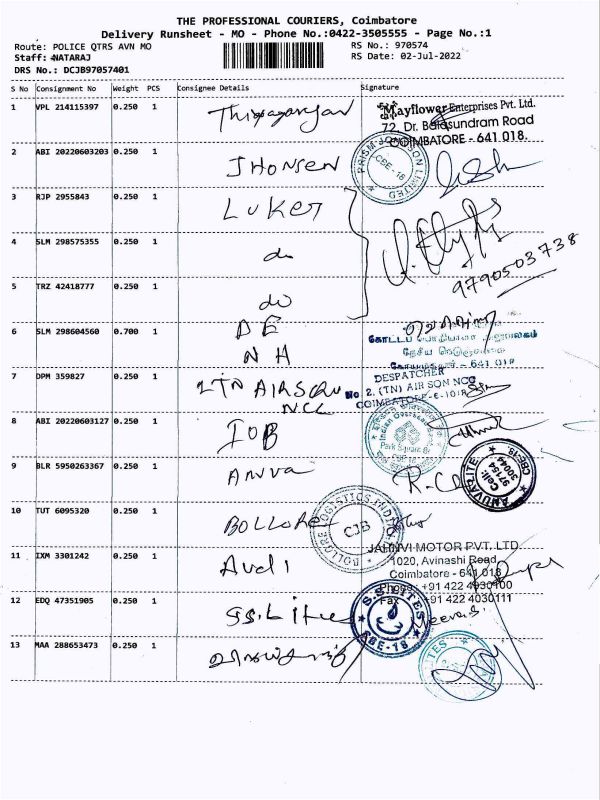 THE PROFESSIONAL COURIERS, Coimbatore
Delivery Runsheet - MO - Phone No.:0422-3505555 - Page No.:1
Route: POLICE QTRS AVN MO RS No.: 970574
Staff: NATARAJ RS Date: 02-Jul-2022
DRS No.: DCJB97057401
S No Consignment No Weight PCS Consignee Details Signature
1 VPL 214115397 0.250 1
Mayflower Enterprises Pvt. Ltd.
72, Dr. Balasundram Road
COIMBATORE - 641 018.
2 ABI 20220603203 0.250 1 JHONSEN
PRISM JOHNSON LIMITED
CBE - 18
3 RJP 2955843 0.250 1 LUKET
4 SLM 298575355 0.250 1 do
9790503738
5 TRZ 42418777 0.250 1 do
6 SLM 298604560 0.700 1 DE
NH
- 641 018
7 DPM 359827 0.250 1 2TN AIRSQN
NCC
DESPATCHER
No. 2. (TN) AIR SON NCC
COIMBATORE
8 ABI 20220603127 0.250 1 IOB
Indian Overseas
9 BLR 5950263367 0.250 1 Anuva
ANUVA LITE
Cell:
97154
30044
CBE-18
10 TUT 6095320 0.250 1 BOLLORE
BOLLORE LOGISTICS INDIA
CJB
11 IXM 3301242 0.250 1 Audi
JAHNVI MOTOR PVT. LTD
1020, Avinashi Road
Coimbatore - 641 018
Phone : +91 422 4030100
Fax : +91 422 4030111
12 EDQ 47351905 0.250 1 S.S.Lites
S.S. LITES
CBE-18
13 MAA 288653473 0.250 1
LITES